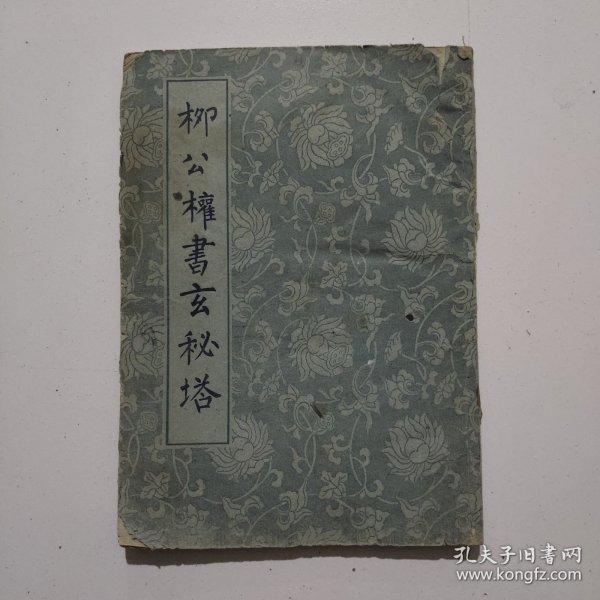 柳公權書玄秘塔
孔夫子旧书网
www.kongfz.com